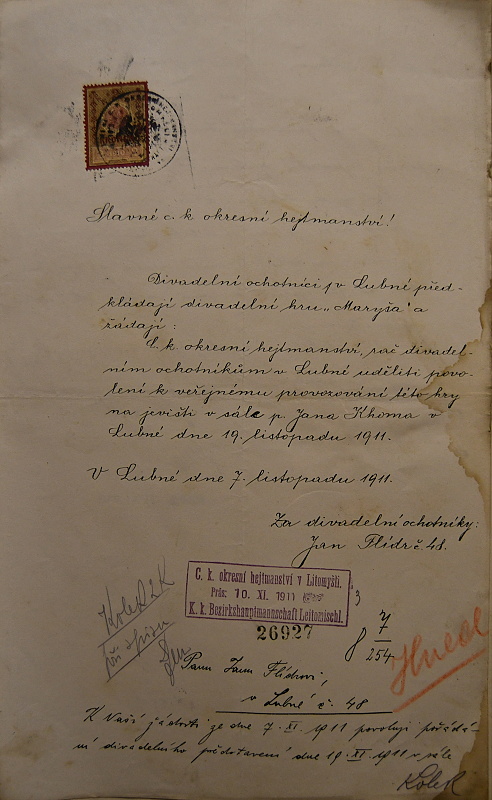 Slavné c. k okresní hejtmanství!
Divadelní ochotníci v Lubné před-
kládají divadelní hru „Maryša" a
žádají:
C. k okresní hejtmanství, rač divadel-
ním ochotníkům v Lubné uděliti povo-
lení k veřejnému provozování této hry
na jevišti v sále p. Jana Khoma v
Lubné dne 19. listopadu 1911.
V Lubné dne 7. listopadu 1911.
Za divadelní ochotníky:
Jan Flídr č. 48.
C. k. okresní hejtmanství v Litomyšli.
Präs: 10. XI. 1911
K. k. Bezirkshauptmannschaft Leitomischl.
26927
8 7/254
Kolek 2K
při spisu
Panu Janu Flídrovi,
v Lubné č. 48
K Vaší žádosti ze dne 7. XI. 1911 povoluji pořádá-
ní divadelního představení dne 19. XI. 1911 v sále
Kolek